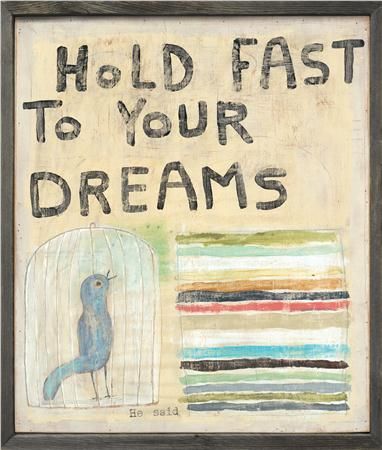 HoLD FAST
To YOUR
DREAMS
He said